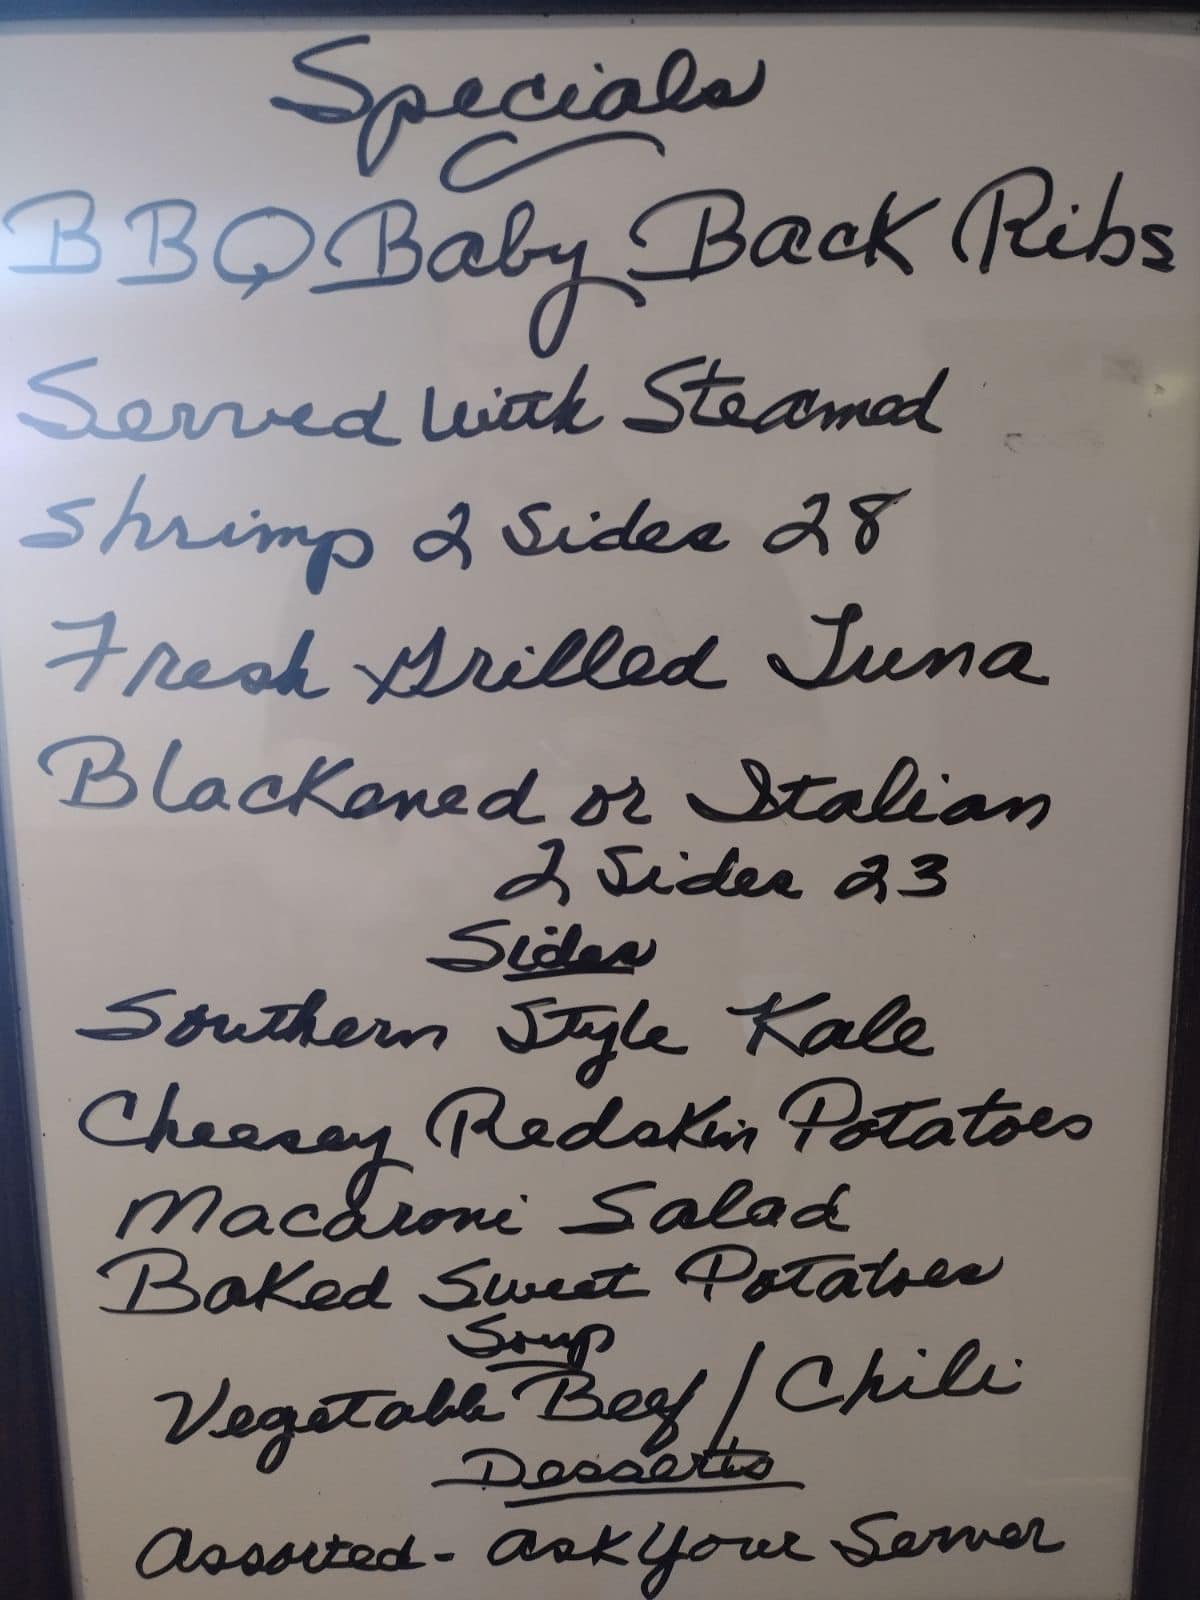 Specials
BBQ Baby Back Ribs
Served with Steamed
Shrimp 2 Sides 28
Fresh Grilled Tuna
Blackened or Italian
2 Sides 23
Sides
Southern Style Kale
Cheesey Redskin Potatoes
Macaroni Salad
Baked Sweet Potatoes
Soup
Vegetable Beef / Chili
Desserts
Assorted - Ask Your Server